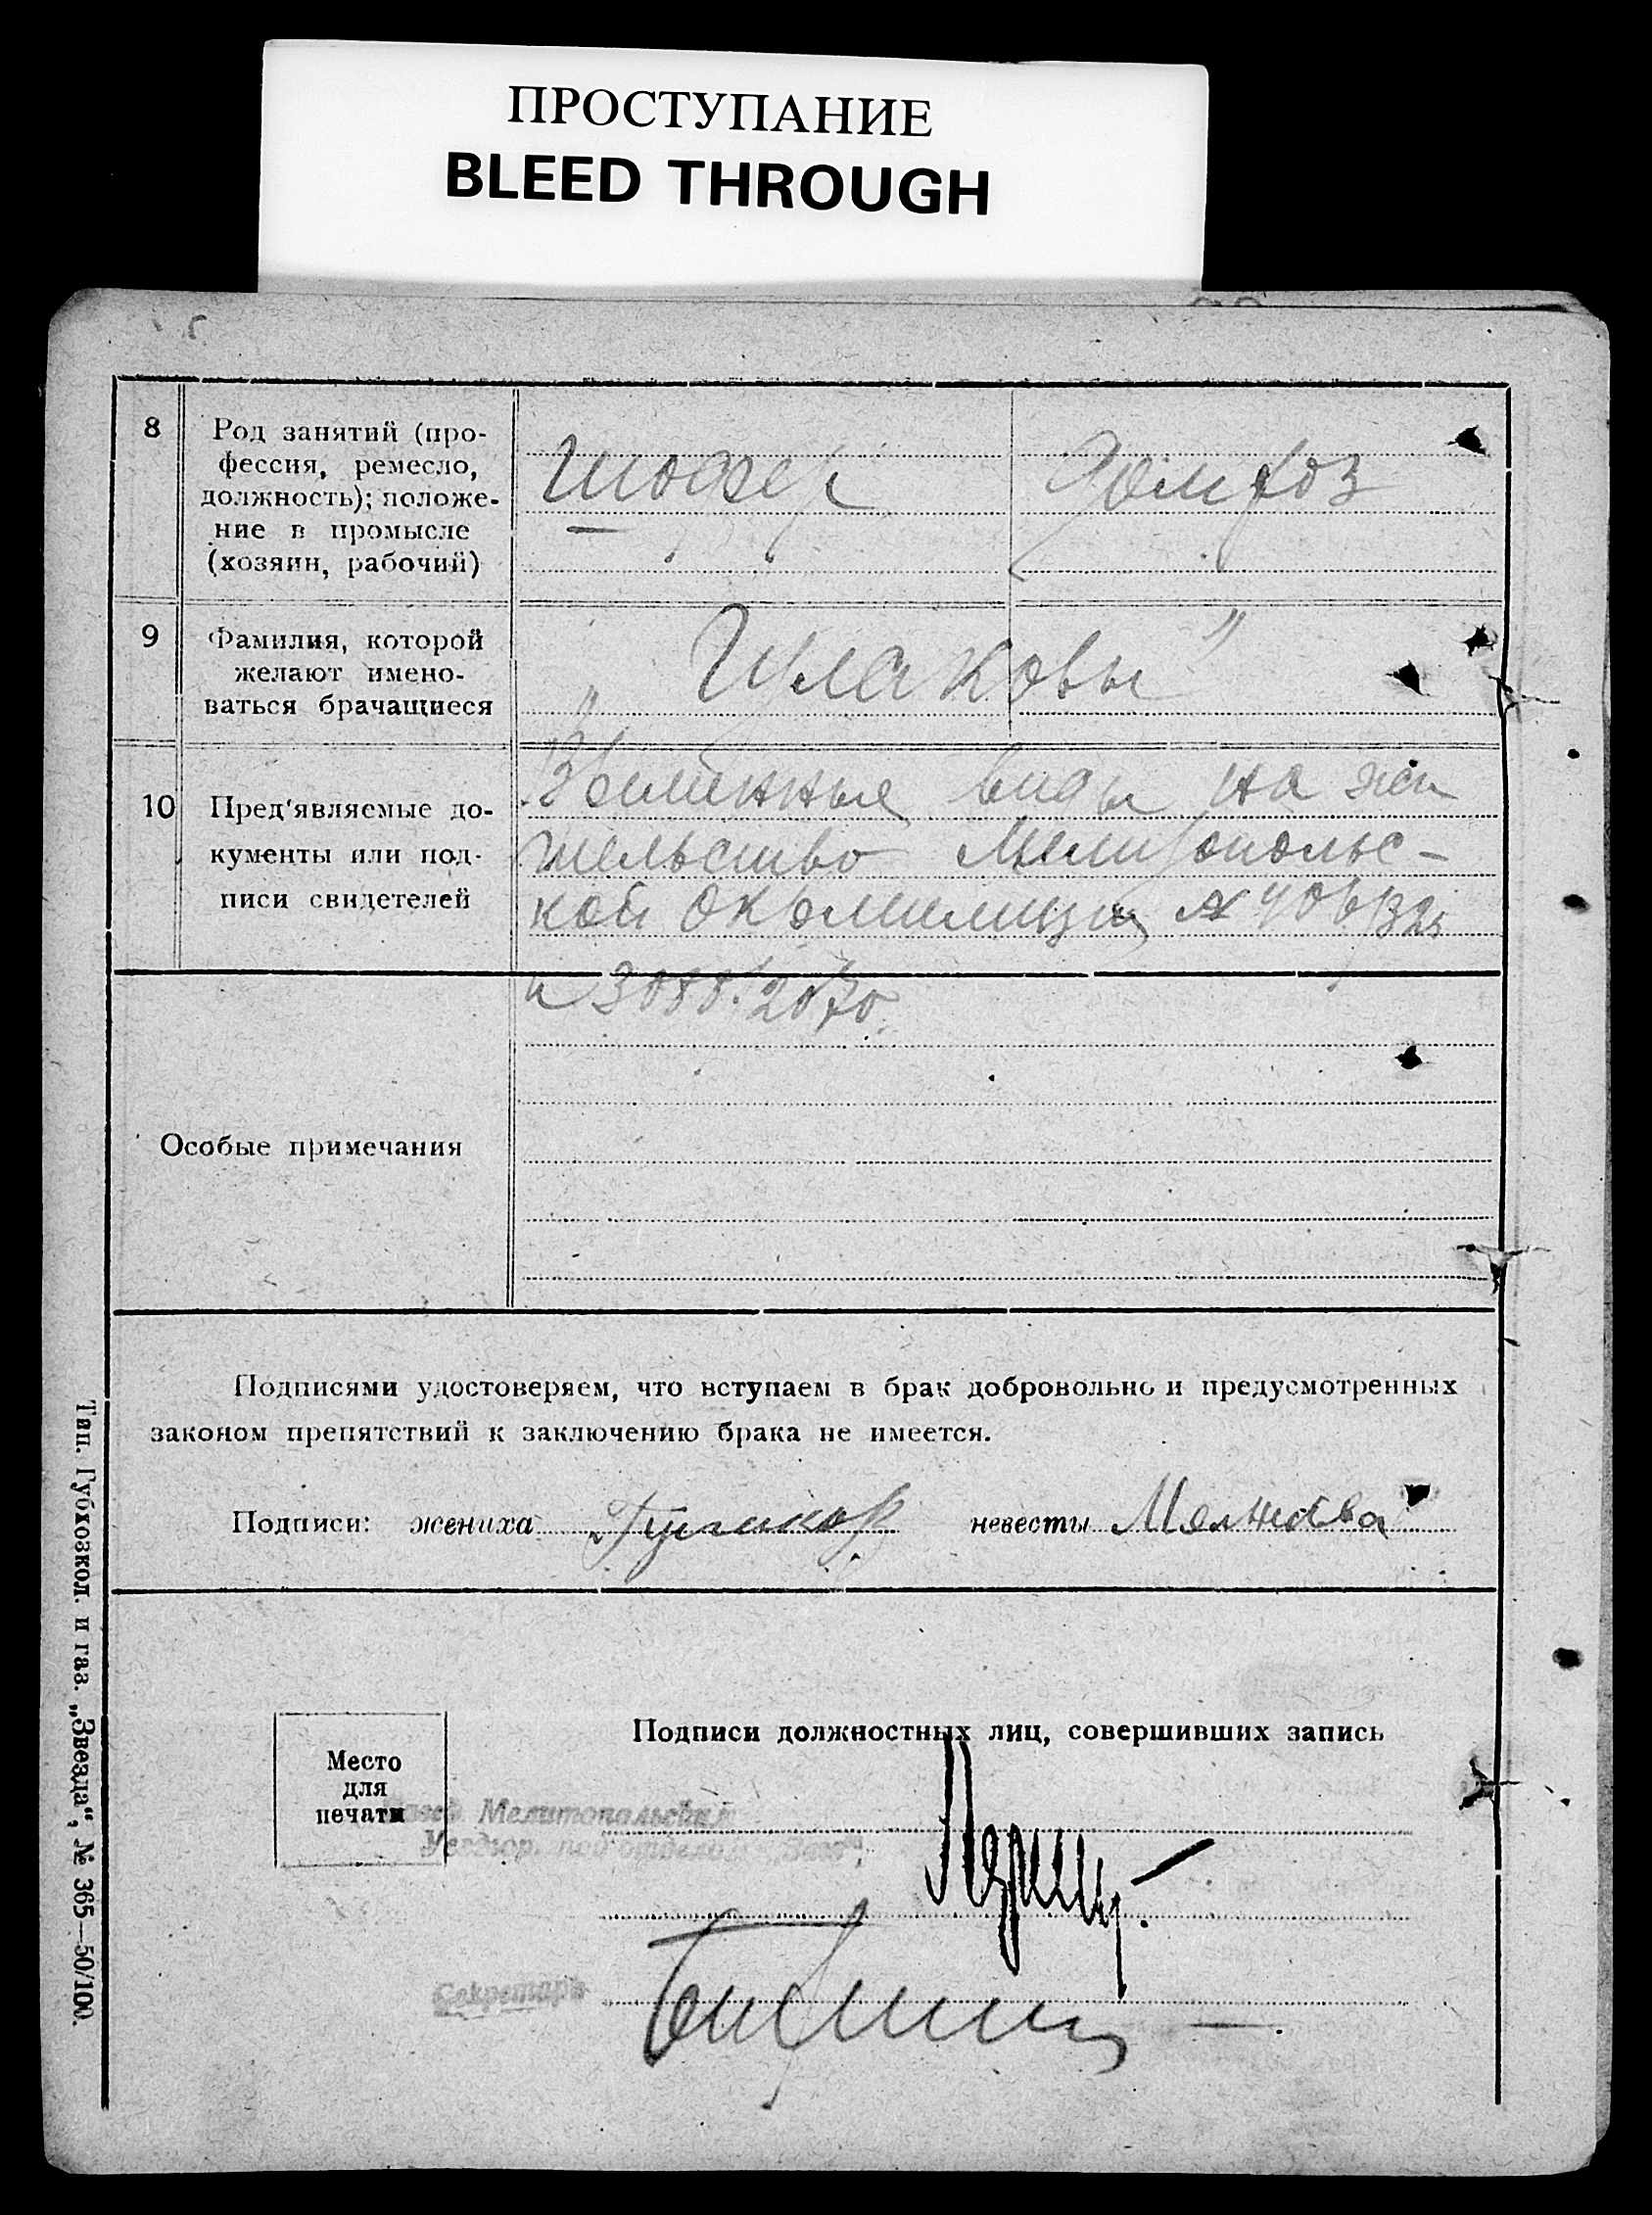 ПРОСТУПАНИЕ
BLEED THROUGH
8
Род занятий (про-
фессия, ремесло,
должность); положе-
ние в промысле
(хозяин, рабочий)
Шофер
Домхоз
9
Фамилия, которой
желают имено-
ваться брачащиеся
„ Шлаковы "
10
Пред'являемые до-
кументы или под-
писи свидетелей
Временные виды на жи
тельство Мелитопольс-
кой Окрмилиции №
и 3088/2070.
Особые примечания
Подписями удостоверяем, что вступаем в брак добровольно и предусмотренных
законом препятствий к заключению брака не имеется.
Подписи: жениха невесты
Место
для
печати
Подписи должностных лиц, совершивших запись
Мелитопольским
Секретарь
Тип. Губхозкол. и газ. „Звезда“, № 365—50/100.